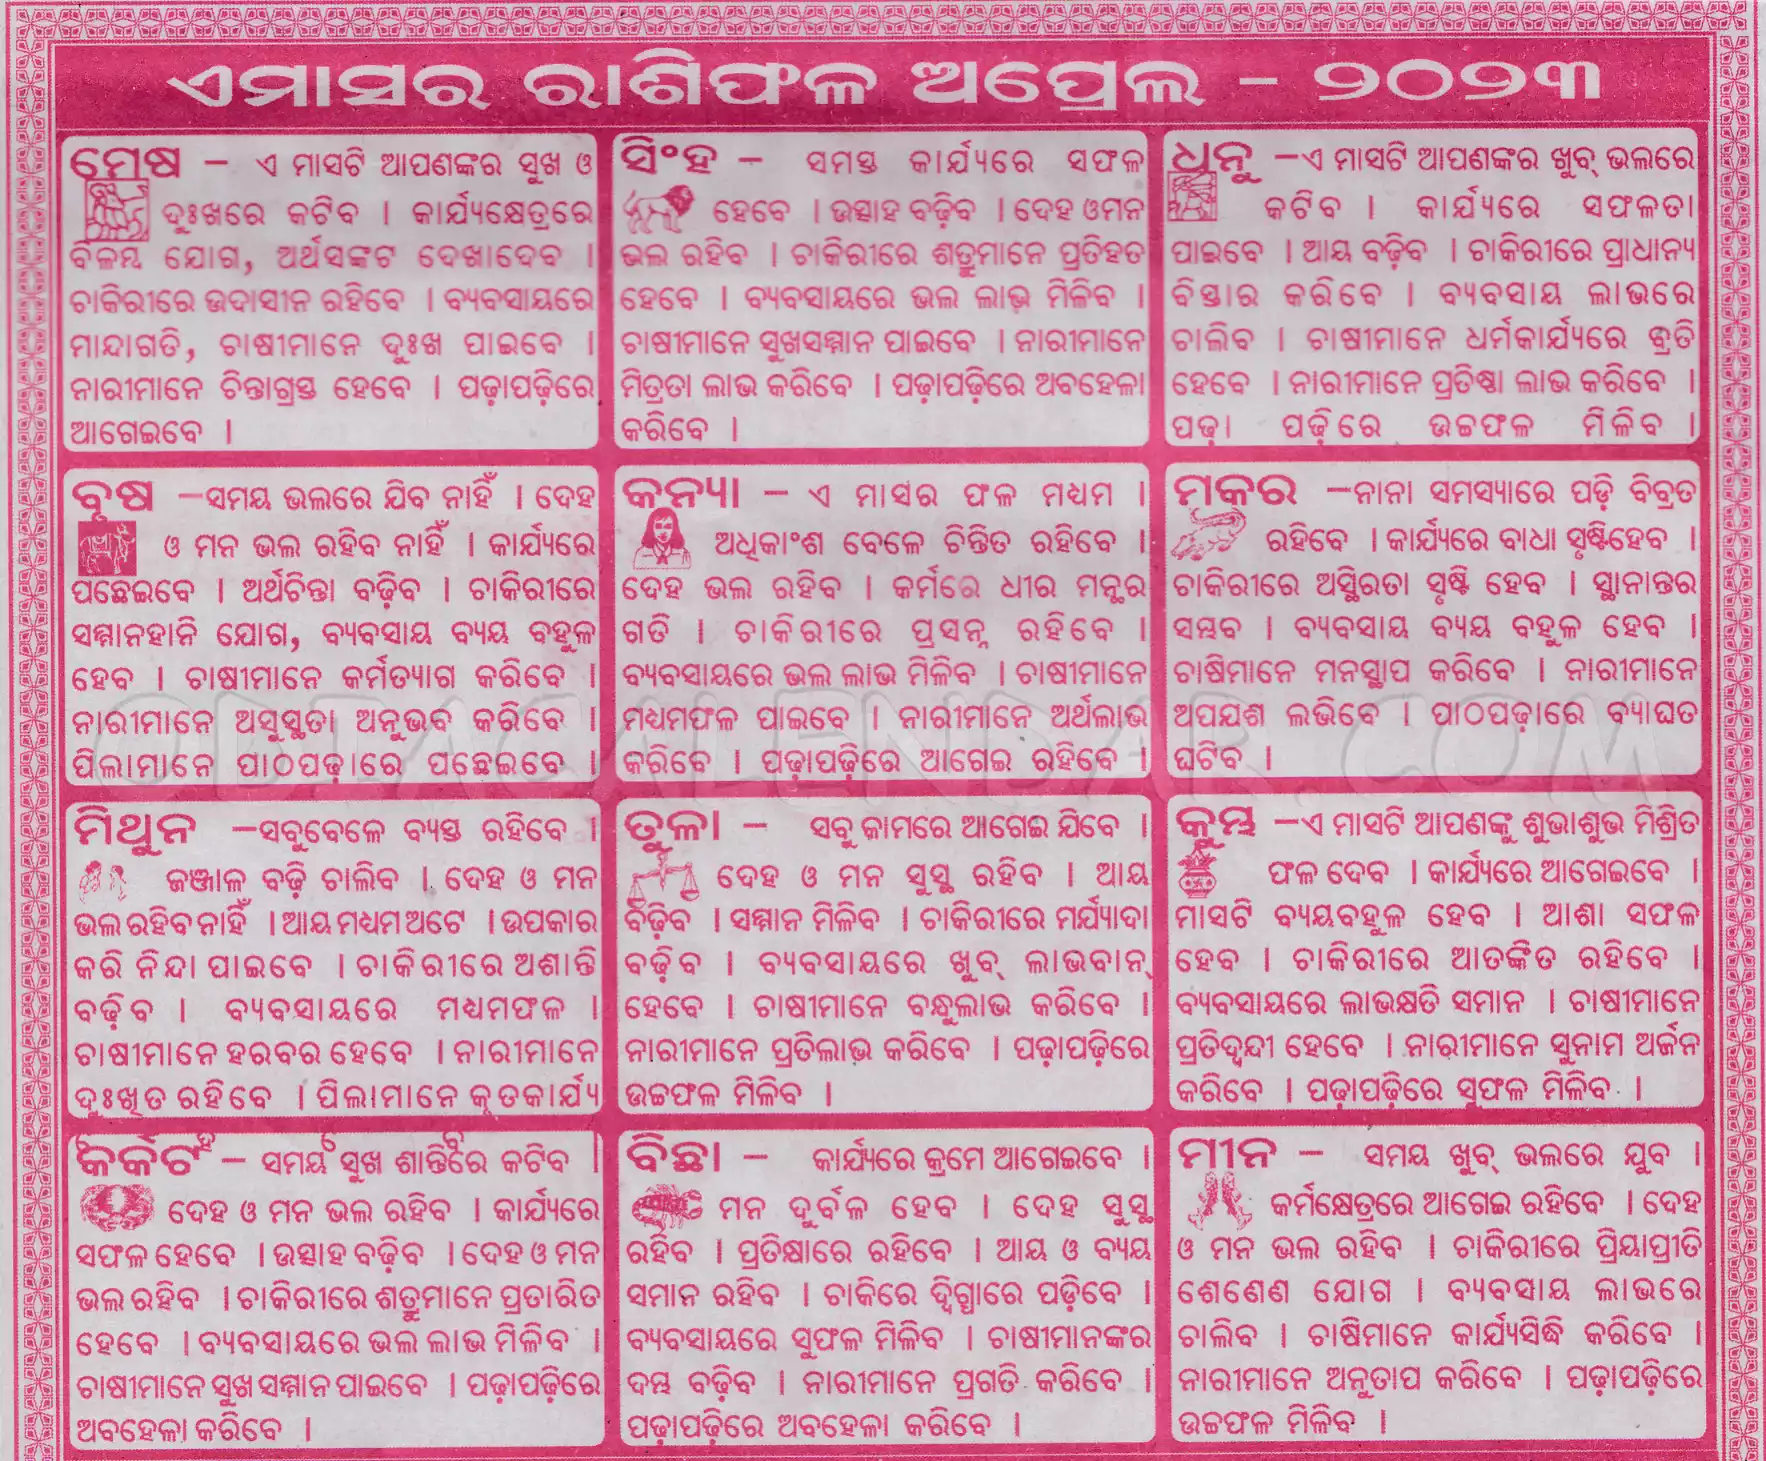 ଏମାସର ରାଶିଫଳ ଅପ୍ରେଲ - ୨୦୨୩
ମେଷ - ଏ ମାସଟି ଆପଣଙ୍କର ସୁଖ ଓ
ଦୁଃଖରେ କଟିବ । କାର୍ଯ୍ୟକ୍ଷେତ୍ରରେ
ବିଳମ୍ବ ଯୋଗ, ଅର୍ଥସଙ୍କଟ ଦେଖାଦେବ ।
ଚାକିରୀରେ ଉଦାସୀନ ରହିବେ । ବ୍ୟବସାୟରେ
ମାନ୍ଦାଗତି, ଚାଷୀମାନେ ଦୁଃଖ ପାଇବେ ।
ନାରୀମାନେ ଚିନ୍ତାଗ୍ରସ୍ତ ହେବେ । ପଢ଼ାପଢ଼ିରେ
ଆଗେଇବେ ।
ବୃଷ -ସମୟ ଭଲରେ ଯିବ ନାହିଁ । ଦେହ
ଓ ମନ ଭଲ ରହିବ ନାହିଁ । କାର୍ଯ୍ୟରେ
ପଛେଇବେ । ଅର୍ଥଚିନ୍ତା ବଢ଼ିବ । ଚାକିରୀରେ
ସମ୍ମାନହାନି ଯୋଗ, ବ୍ୟବସାୟ ବ୍ୟୟ ବହୁଳ
ହେବ । ଚାଷୀମାନେ କର୍ମତ୍ୟାଗ କରିବେ ।
ନାରୀମାନେ ଅସୁସ୍ଥତା ଅନୁଭବ କରିବେ ।
ପିଲାମାନେ ପାଠପଢ଼ାରେ ପଛେଇବେ ।
ମିଥୁନ -ସବୁବେଳେ ବ୍ୟସ୍ତ ରହିବେ ।
ଜଞ୍ଜାଳ ବଢ଼ି ଚାଲିବ । ଦେହ ଓ ମନ
ଭଲ ରହିବ ନାହିଁ । ଆୟ ମଧ୍ୟମ ଅଟେ । ଉପକାର
କରି ନିନ୍ଦା ପାଇବେ । ଚାକିରୀରେ ଅଶାନ୍ତି
ବଢ଼ିବ । ବ୍ୟବସାୟରେ ମଧ୍ୟମଫଳ ।
ଚାଷୀମାନେ ହରବର ହେବେ । ନାରୀମାନେ
ଦୁଃଖିତ ରହିବେ । ପିଲାମାନେ କୃତକାର୍ଯ୍ୟ
କର୍କଟ - ସମୟ ସୁଖ ଶାନ୍ତିରେ କଟିବ ।
ଦେହ ଓ ମନ ଭଲ ରହିବ । କାର୍ଯ୍ୟରେ
ସଫଳ ହେବେ । ଉତ୍ସାହ ବଢ଼ିବ । ଦେହ ଓ ମନ
ଭଲ ରହିବ । ଚାକିରୀରେ ଶତ୍ରୁମାନେ ପ୍ରତାରିତ
ହେବେ । ବ୍ୟବସାୟରେ ଭଲ ଲାଭ ମିଳିବ ।
ଚାଷୀମାନେ ସୁଖ ସମ୍ମାନ ପାଇବେ । ପଢ଼ାପଢ଼ିରେ
ଅବହେଳା କରିବେ ।
ସିଂହ - ସମସ୍ତ କାର୍ଯ୍ୟରେ ସଫଳ
ହେବେ । ଉତ୍ସାହ ବଢ଼ିବ । ଦେହ ଓମନ
ଭଲ ରହିବ । ଚାକିରୀରେ ଶତ୍ରୁମାନେ ପ୍ରତିହତ
ହେବେ । ବ୍ୟବସାୟରେ ଭଲ ଲାଭ ମିଳିବ ।
ଚାଷୀମାନେ ସୁଖସମ୍ମାନ ପାଇବେ । ନାରୀମାନେ
ମିତ୍ରତା ଲାଭ କରିବେ । ପଢ଼ାପଢ଼ିରେ ଅବହେଳା
କରିବେ ।
କନ୍ୟା - ଏ ମାସର ଫଳ ମଧ୍ୟମ ।
ଅଧିକାଂଶ ବେଳେ ଚିନ୍ତିତ ରହିବେ ।
ଦେହ ଭଲ ରହିବ । କର୍ମରେ ଧୀର ମନ୍ଥର
ଗତି । ଚାକିରୀରେ ପ୍ରସନ୍ନ ରହିବେ ।
ବ୍ୟବସାୟରେ ଭଲ ଲାଭ ମିଳିବ । ଚାଷୀମାନେ
ମଧ୍ୟମଫଳ ପାଇବେ । ନାରୀମାନେ ଅର୍ଥଲାଭ
କରିବେ । ପଢ଼ାପଢ଼ିରେ ଆଗେଇ ରହିବେ ।
ତୁଳା - ସବୁ କାମରେ ଆଗେଇ ଯିବେ ।
ଦେହ ଓ ମନ ସୁସ୍ଥ ରହିବ । ଆୟ
ବଢ଼ିବ । ସମ୍ମାନ ମିଳିବ । ଚାକିରୀରେ ମର୍ଯ୍ୟାଦା
ବଢ଼ିବ । ବ୍ୟବସାୟରେ ଖୁବ୍ ଲାଭବାନ୍
ହେବେ । ଚାଷୀମାନେ ବନ୍ଧୁଲାଭ କରିବେ ।
ନାରୀମାନେ ପ୍ରତିଲାଭ କରିବେ । ପଢ଼ାପଢ଼ିରେ
ଉଚ୍ଚଫଳ ମିଳିବ ।
ବିଛା - କାର୍ଯ୍ୟରେ କ୍ରମେ ଆଗେଇବେ ।
ମନ ଦୁର୍ବଳ ହେବ । ଦେହ ସୁସ୍ଥ
ରହିବ । ପ୍ରତିକ୍ଷାରେ ରହିବେ । ଆୟ ଓ ବ୍ୟୟ
ସମାନ ରହିବ । ଚାକିରେ ଦ୍ୱିଗ୍ଧାରେ ପଡ଼ିବେ ।
ବ୍ୟବସାୟରେ ସୁଫଳ ମିଳିବ । ଚାଷୀମାନଙ୍କର
ଦମ୍ଭ ବଢ଼ିବ । ନାରୀମାନେ ପ୍ରଗତି କରିବେ ।
ପଢ଼ାପଢ଼ିରେ ଅବହେଳା କରିବେ ।
ଧନୁ -ଏ ମାସଟି ଆପଣଙ୍କର ଖୁବ୍ ଭଲରେ
କଟିବ । କାର୍ଯ୍ୟରେ ସଫଳତା
ପାଇବେ । ଆୟ ବଢ଼ିବ । ଚାକିରୀରେ ପ୍ରାଧାନ୍ୟ
ବିସ୍ତାର କରିବେ । ବ୍ୟବସାୟ ଲାଭରେ
ଚାଲିବ । ଚାଷୀମାନେ ଧର୍ମକାର୍ଯ୍ୟରେ ବ୍ରତି
ହେବେ । ନାରୀମାନେ ପ୍ରତିଷ୍ଠା ଲାଭ କରିବେ ।
ପଢ଼ା ପଢ଼ିରେ ଉଚ୍ଚଫଳ ମିଳିବ ।
ମକର -ନାନା ସମସ୍ୟାରେ ପଡ଼ି ବିବ୍ରତ
ରହିବେ । କାର୍ଯ୍ୟରେ ବାଧା ସୃଷ୍ଟିହେବ ।
ଚାକିରୀରେ ଅସ୍ଥିରତା ସୃଷ୍ଟି ହେବ । ସ୍ଥାନାନ୍ତର
ସମ୍ଭବ । ବ୍ୟବସାୟ ବ୍ୟୟ ବହୁଳ ହେବ ।
ଚାଷିମାନେ ମନସ୍ଥାପ କରିବେ । ନାରୀମାନେ
ଅପଯଶ ଲଭିବେ । ପାଠପଢ଼ାରେ ବ୍ୟାଘତ
ଘଟିବ ।
କୁମ୍ଭ -ଏ ମାସଟି ଆପଣଙ୍କୁ ଶୁଭାଶୁଭ ମିଶ୍ରିତ
ଫଳ ଦେବ । କାର୍ଯ୍ୟରେ ଆଗେଇବେ ।
ମାସଟି ବ୍ୟୟବହୁଳ ହେବ । ଆଶା ସଫଳ
ହେବ । ଚାକିରୀରେ ଆତଙ୍କିତ ରହିବେ ।
ବ୍ୟବସାୟରେ ଲାଭକ୍ଷତି ସମାନ । ଚାଷୀମାନେ
ପ୍ରତିଦ୍ୱନ୍ଦୀ ହେବେ । ନାରୀମାନେ ସୁନାମ ଅର୍ଜନ
କରିବେ । ପଢ଼ାପଢ଼ିରେ ସୁଫଳ ମିଳିବ ।
ମୀନ - ସମୟ ଖୁବ୍ ଭଲରେ ଯୁବ ।
କର୍ମକ୍ଷେତ୍ରରେ ଆଗେଇ ରହିବେ । ଦେହ
ଓ ମନ ଭଲ ରହିବ । ଚାକିରୀରେ ପ୍ରିୟାପ୍ରୀତି
ଶେଣେଣ ଯୋଗ । ବ୍ୟବସାୟ ଲାଭରେ
ଚାଲିବ । ଚାଷିମାନେ କାର୍ଯ୍ୟସିଦ୍ଧି କରିବେ ।
ନାରୀମାନେ ଅନୁତାପ କରିବେ । ପଢ଼ାପଢ଼ିରେ
ଉଚ୍ଚଫଳ ମିଳିବ ।
ODIACALENDAR.COM